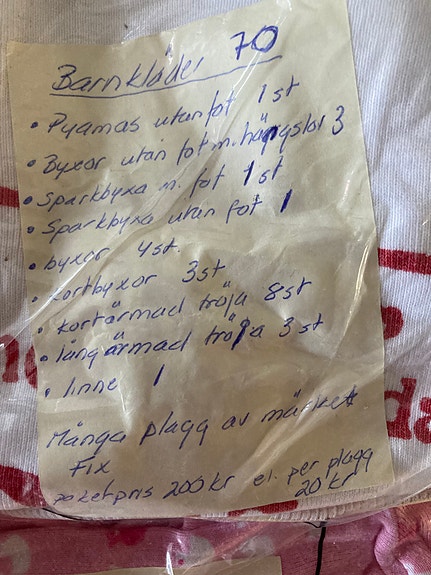 Barnkläder 70
• Pyamas utan fot 1 st
• Byxor utan fot m. hängslor 3
• Sparkbyxa m. fot 1 st
• Sparkbyxa utan fot 1
• byxor 4 st.
• kortbyxor 3 st
• kortärmad tröja 8 st
• långärmad tröja 3 st
• linne 1
Många plagg av märket
Fix
paketpris 200 kr el. per plagg
20 kr
da